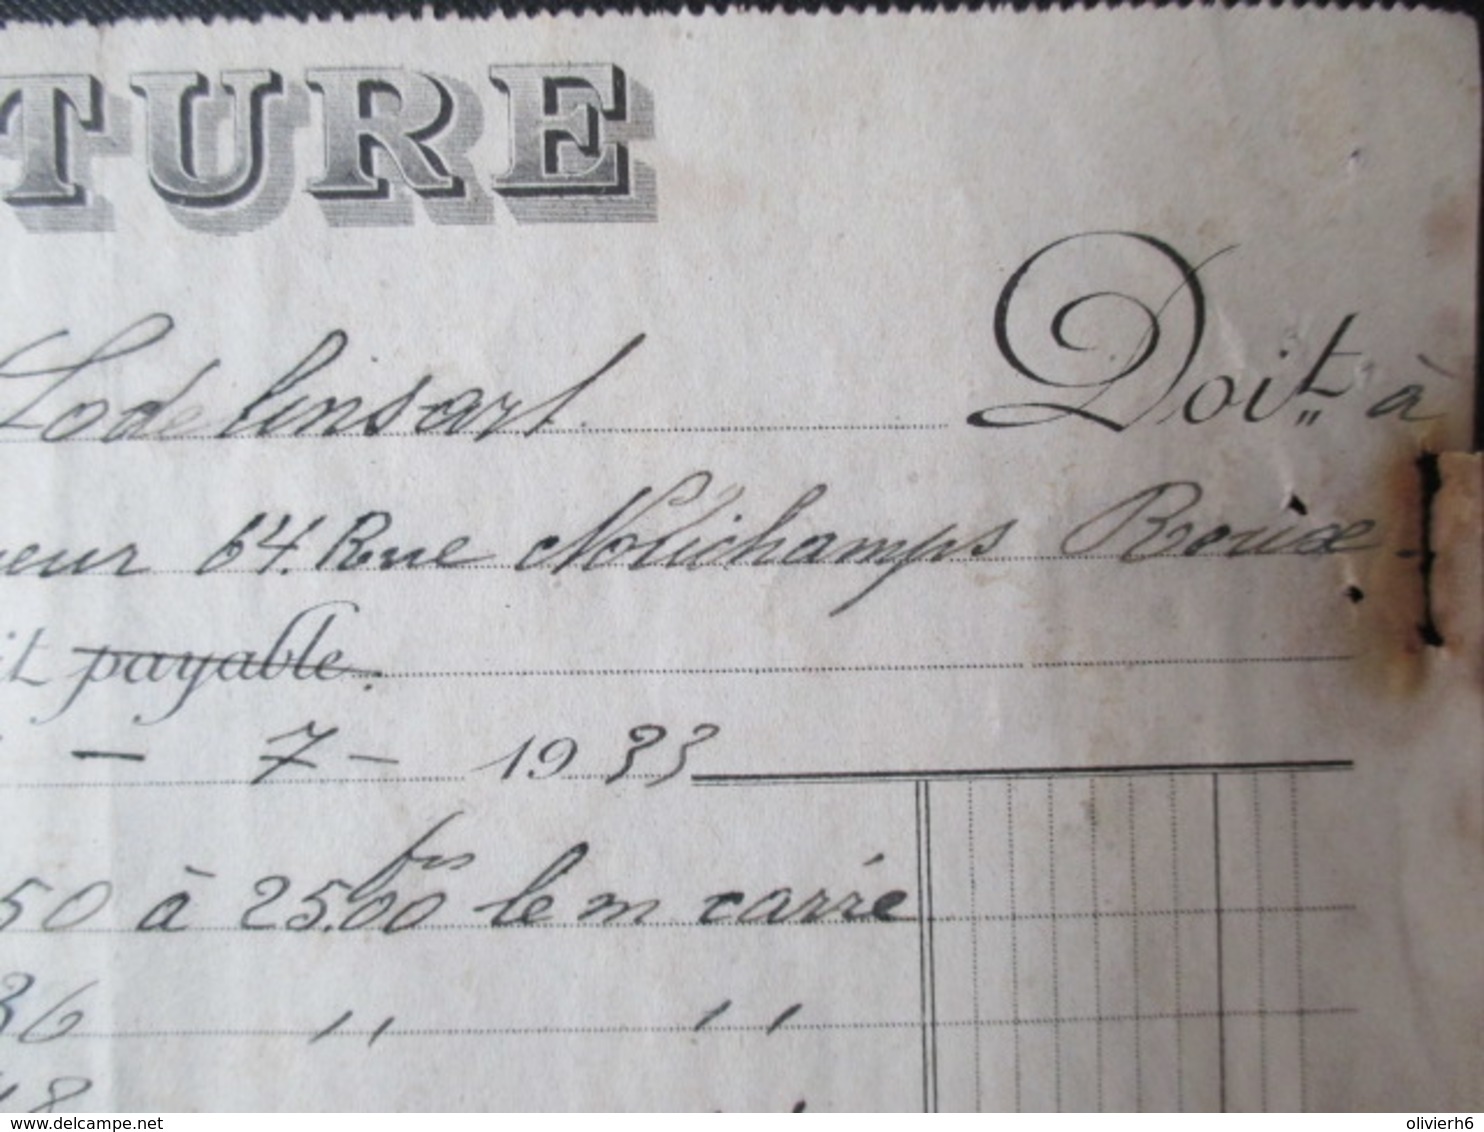 TURE
Lodelinsart. Doit à
eur 64. Rue Nolichamps Roux -
it payable.
- 7 - 1933
50 à 25.00 frs le m carré
36 " "
48
delcampe.net
olivierh6